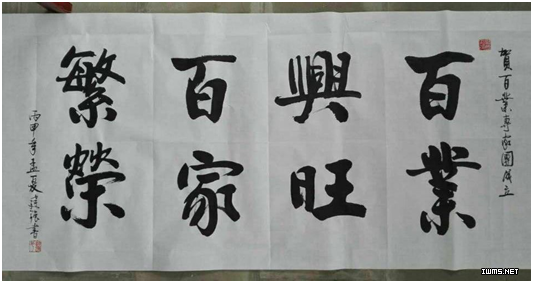 賀百業專家團成立
百業
興旺
百家
繁榮
丙申年孟夏書
IWMS.NET